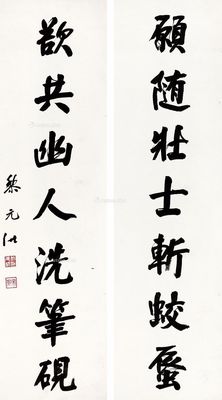 願随壮士斬蛟蜃
欲共幽人洗筆硯
黎元洪